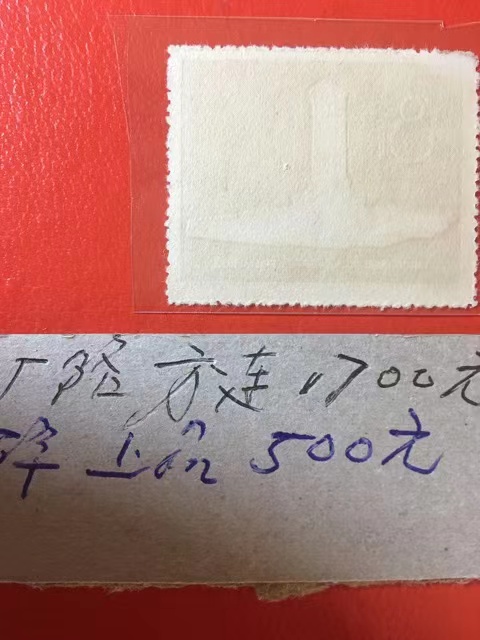 方连 1700元
上品 500元